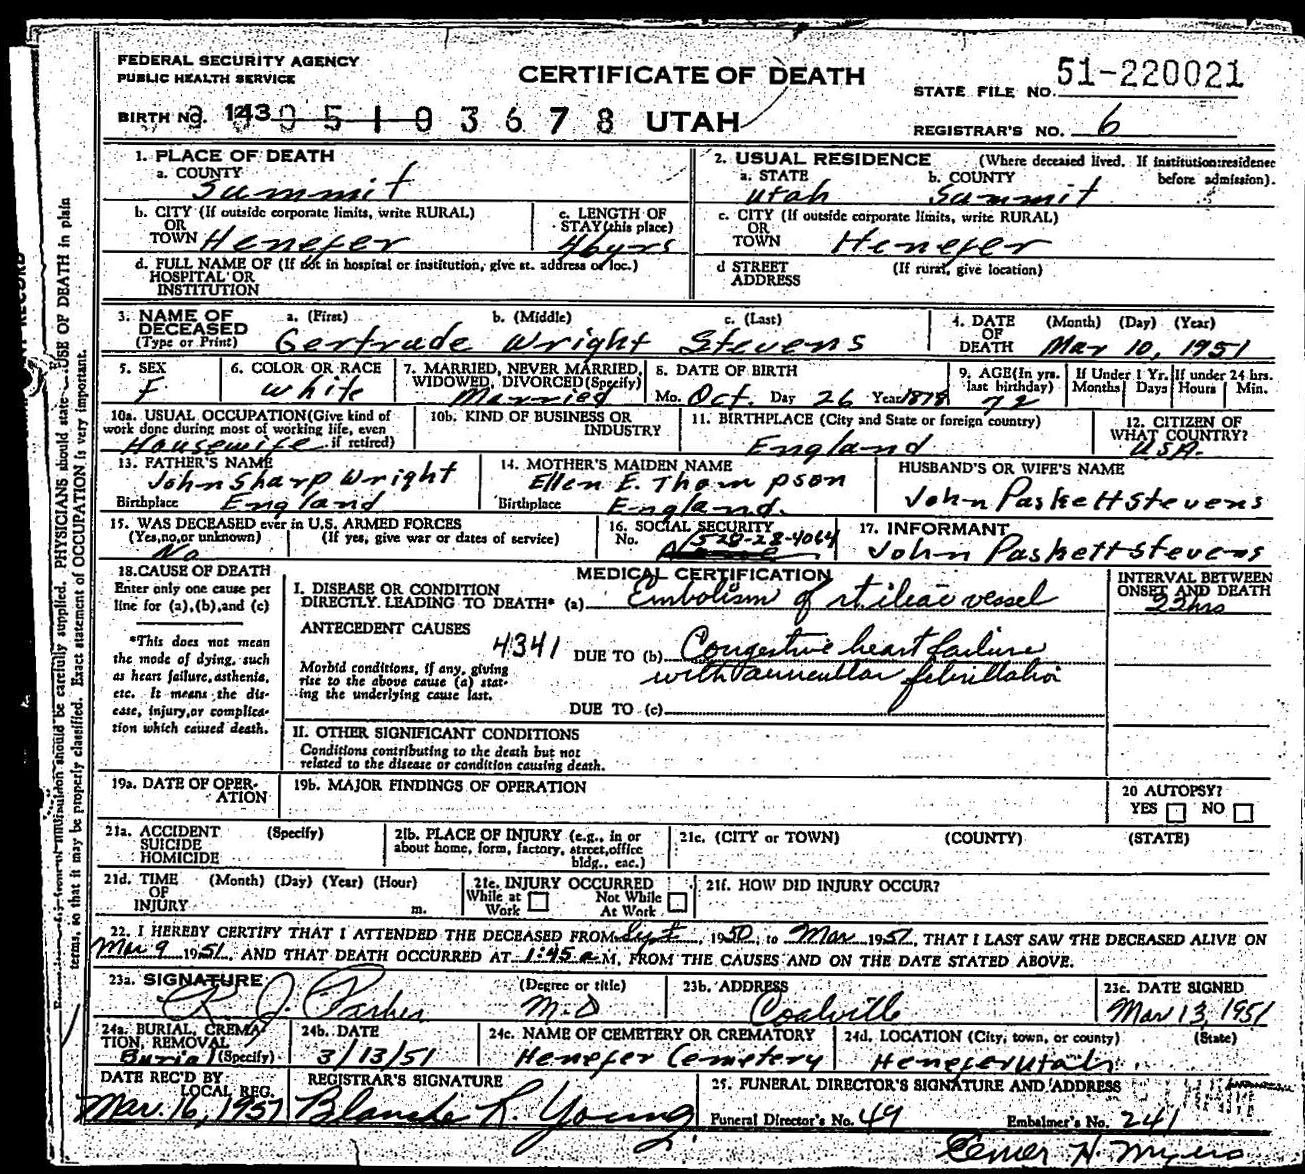 FEDERAL SECURITY AGENCY
PUBLIC HEALTH SERVICE
CERTIFICATE OF DEATH
STATE FILE NO. 51-220021
BIRTH NO. 143 0 5 1 0 3 6 7 8 UTAH
REGISTRAR'S NO. 6
1. PLACE OF DEATH
a. COUNTY
Summit
2. USUAL RESIDENCE (Where deceased lived. If institution:residence before admission).
a. STATE b. COUNTY
Utah Summit
b. CITY (If outside corporate limits, write RURAL)
OR
TOWN Henefer
c. LENGTH OF
STAY (this place)
46yrs
c. CITY (If outside corporate limits, write RURAL)
OR
TOWN Henefer
d. FULL NAME OF (If not in hospital or institution, give st. address or loc.)
HOSPITAL OR
INSTITUTION
d STREET (If rural, give location)
ADDRESS
3. NAME OF DECEASED
(Type or Print)
a. (First) b. (Middle) c. (Last)
Gertrude Wright Stevens
4. DATE OF DEATH (Month) (Day) (Year)
Mar 10, 1951
5. SEX
F.
6. COLOR OR RACE
White
7. MARRIED, NEVER MARRIED,
WIDOWED, DIVORCED (Specify)
Married
8. DATE OF BIRTH
Mo. Oct. Day 26 Year 1878
9. AGE (In yrs. last birthday)
72
If Under 1 Yr. Months Days
If under 24 hrs. Hours Min.
10a. USUAL OCCUPATION (Give kind of
work done during most of working life, even
if retired)
Housewife
10b. KIND OF BUSINESS OR
INDUSTRY
11. BIRTHPLACE (City and State or foreign country)
England
12. CITIZEN OF
WHAT COUNTRY?
U.S.A.
13. FATHER'S NAME
John Sharp Wright
Birthplace England
14. MOTHER'S MAIDEN NAME
Ellen E. Thompson
Birthplace England.
HUSBAND'S OR WIFE'S NAME
John Paskett Stevens
15. WAS DECEASED ever in U.S. ARMED FORCES
(Yes, no, or unknown) (If yes, give war or dates of service)
No
16. SOCIAL SECURITY
No. 528-28-4064
17. INFORMANT
John Paskett Stevens
18. CAUSE OF DEATH
Enter only one cause per
line for (a), (b), and (c)
*This does not mean
the mode of dying, such
as heart failure, asthenia,
etc. It means the dis-
ease, injury, or complica-
tion which caused death.
MEDICAL CERTIFICATION
I. DISEASE OR CONDITION
DIRECTLY LEADING TO DEATH* (a) Embolism of rt iliac vessel
INTERVAL BETWEEN
ONSET AND DEATH
ANTECEDENT CAUSES
4341
DUE TO (b) Congestive heart failure
with auricular fibrillation
Morbid conditions, if any, giving
rise to the above cause (a) stat-
ing the underlying cause last.
DUE TO (c)
II. OTHER SIGNIFICANT CONDITIONS
Conditions contributing to the death but not
related to the disease or condition causing death.
19a. DATE OF OPER-
ATION
19b. MAJOR FINDINGS OF OPERATION
20 AUTOPSY?
YES NO
21a. ACCIDENT (Specify)
SUICIDE
HOMICIDE
21b. PLACE OF INJURY (e.g., in or
about home, form, factory, street, office
bldg., eac.)
21c. (CITY or TOWN) (COUNTY) (STATE)
21d. TIME (Month) (Day) (Year) (Hour)
OF
INJURY m.
21e. INJURY OCCURRED
While at Work Not While At Work
21f. HOW DID INJURY OCCUR?
22. I HEREBY CERTIFY THAT I ATTENDED THE DECEASED FROM Sept, 1950, to Mar 1951, THAT I LAST SAW THE DECEASED ALIVE ON
Mar 9 1951, AND THAT DEATH OCCURRED AT 1:45 a.M, FROM THE CAUSES AND ON THE DATE STATED ABOVE.
23a. SIGNATURE (Degree or title)
R. J. Parker M.D
23b. ADDRESS
Coalville
23c. DATE SIGNED
Mar 13, 1951
24a. BURIAL, CREMA-
TION, REMOVAL
Burial (Specify)
24b. DATE
3/13/51
24c. NAME OF CEMETERY OR CREMATORY
Henefer Cemetery
24d. LOCATION (City, town, or county) (State)
Henefer Utah
DATE REC'D BY
LOCAL REG.
Mar. 16, 1951
REGISTRAR'S SIGNATURE
Blanche R. Young
25. FUNERAL DIRECTOR'S SIGNATURE AND ADDRESS
Funeral Director's No. 49 Embalmer's No. 241
H. Myers
PHYSICIANS should state CAUSE OF DEATH in plain
terms, so that it may be properly classified. Exact statement of OCCUPATION is very important.